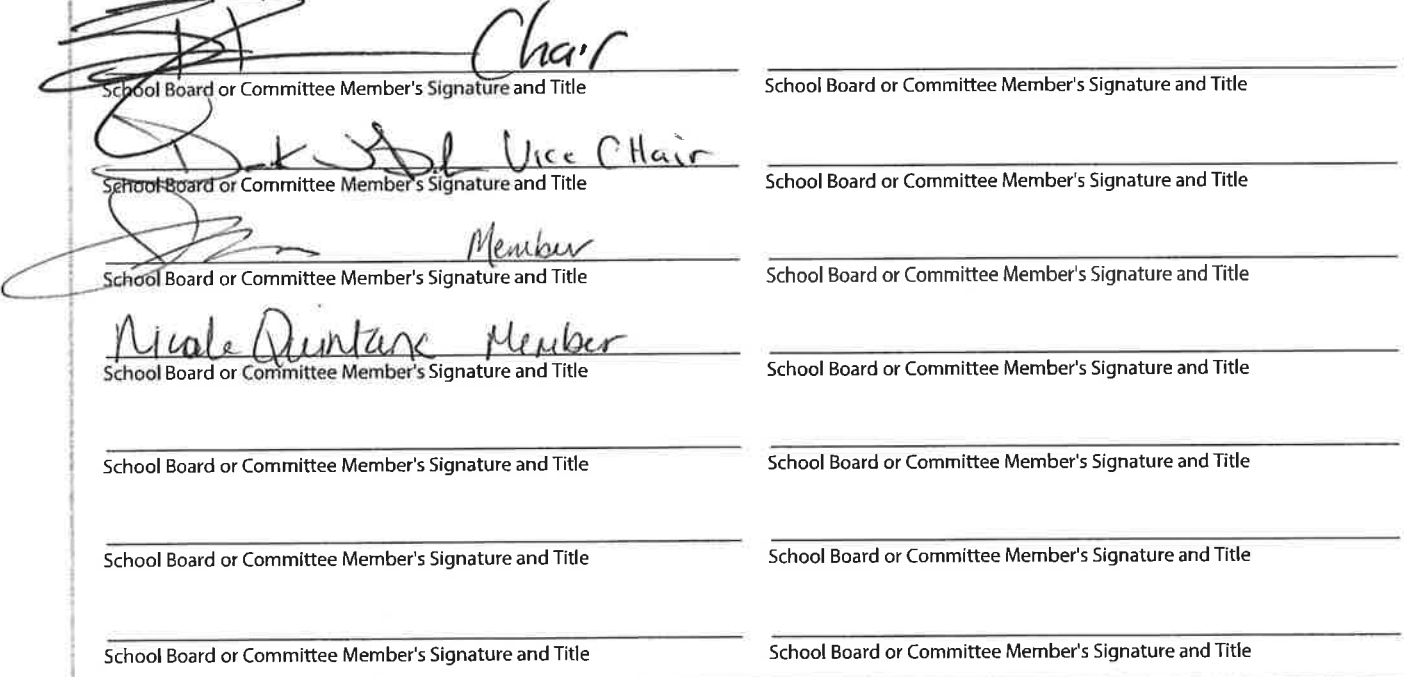 Chair
School Board or Committee Member's Signature and Title
School Board or Committee Member's Signature and Title
Vice CHair
School Board or Committee Member's Signature and Title
School Board or Committee Member's Signature and Title
Member
School Board or Committee Member's Signature and Title
School Board or Committee Member's Signature and Title
Nicole Quintana Member
School Board or Committee Member's Signature and Title
School Board or Committee Member's Signature and Title
School Board or Committee Member's Signature and Title
School Board or Committee Member's Signature and Title
School Board or Committee Member's Signature and Title
School Board or Committee Member's Signature and Title
School Board or Committee Member's Signature and Title
School Board or Committee Member's Signature and Title